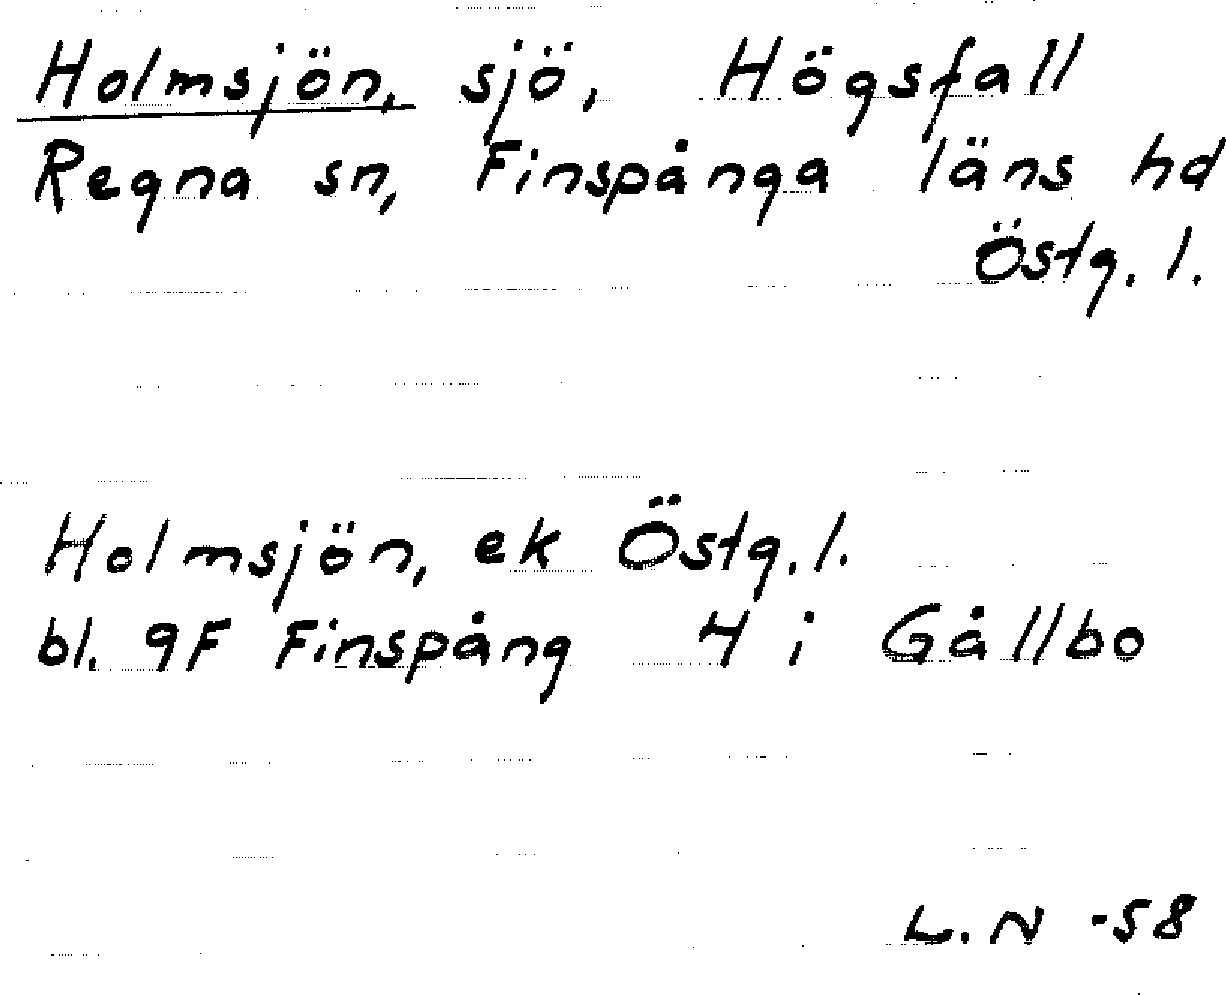 Holmsjön, sjö, Högsfall
Regna sn, Finspånga läns hd
Östg. l.
Holmsjön, ek Östg. l.
bl. 9F Finspång 4 i Gållbo
L. N -58